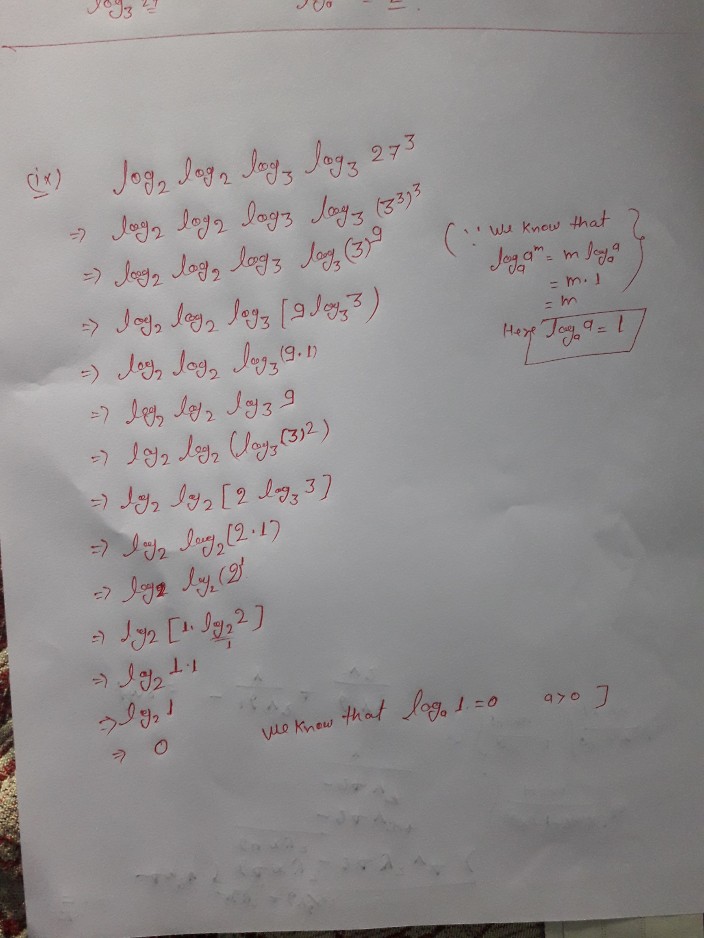 log₃ 27
(ix) log₂ log₂ log₃ log₃ 27³
⇒ log₂ log₂ log₃ log₃ (3³)³
⇒ log₂ log₂ log₃ log₃(3)⁹
⇒ log₂ log₂ log₃ [9 log₃ 3)
⇒ log₂ log₂ log₃(9·1)
⇒ log₂ log₂ log₃ 9
⇒ log₂ log₂ (log₃(3)²)
⇒ log₂ log₂ [2 log₃ 3]
⇒ log₂ log₂ [2·1)
⇒ log₂ log₂(2)¹
⇒ log₂ [1. log₂ 2]
1
⇒ log₂ 1·1
⇒ log₂ 1
⇒ 0
(∵ we know that }
logₐ aᵐ = m logₐ a
= m·1
= m
Here logₐ a = 1
we know that logₐ 1 = 0 a>0 ]